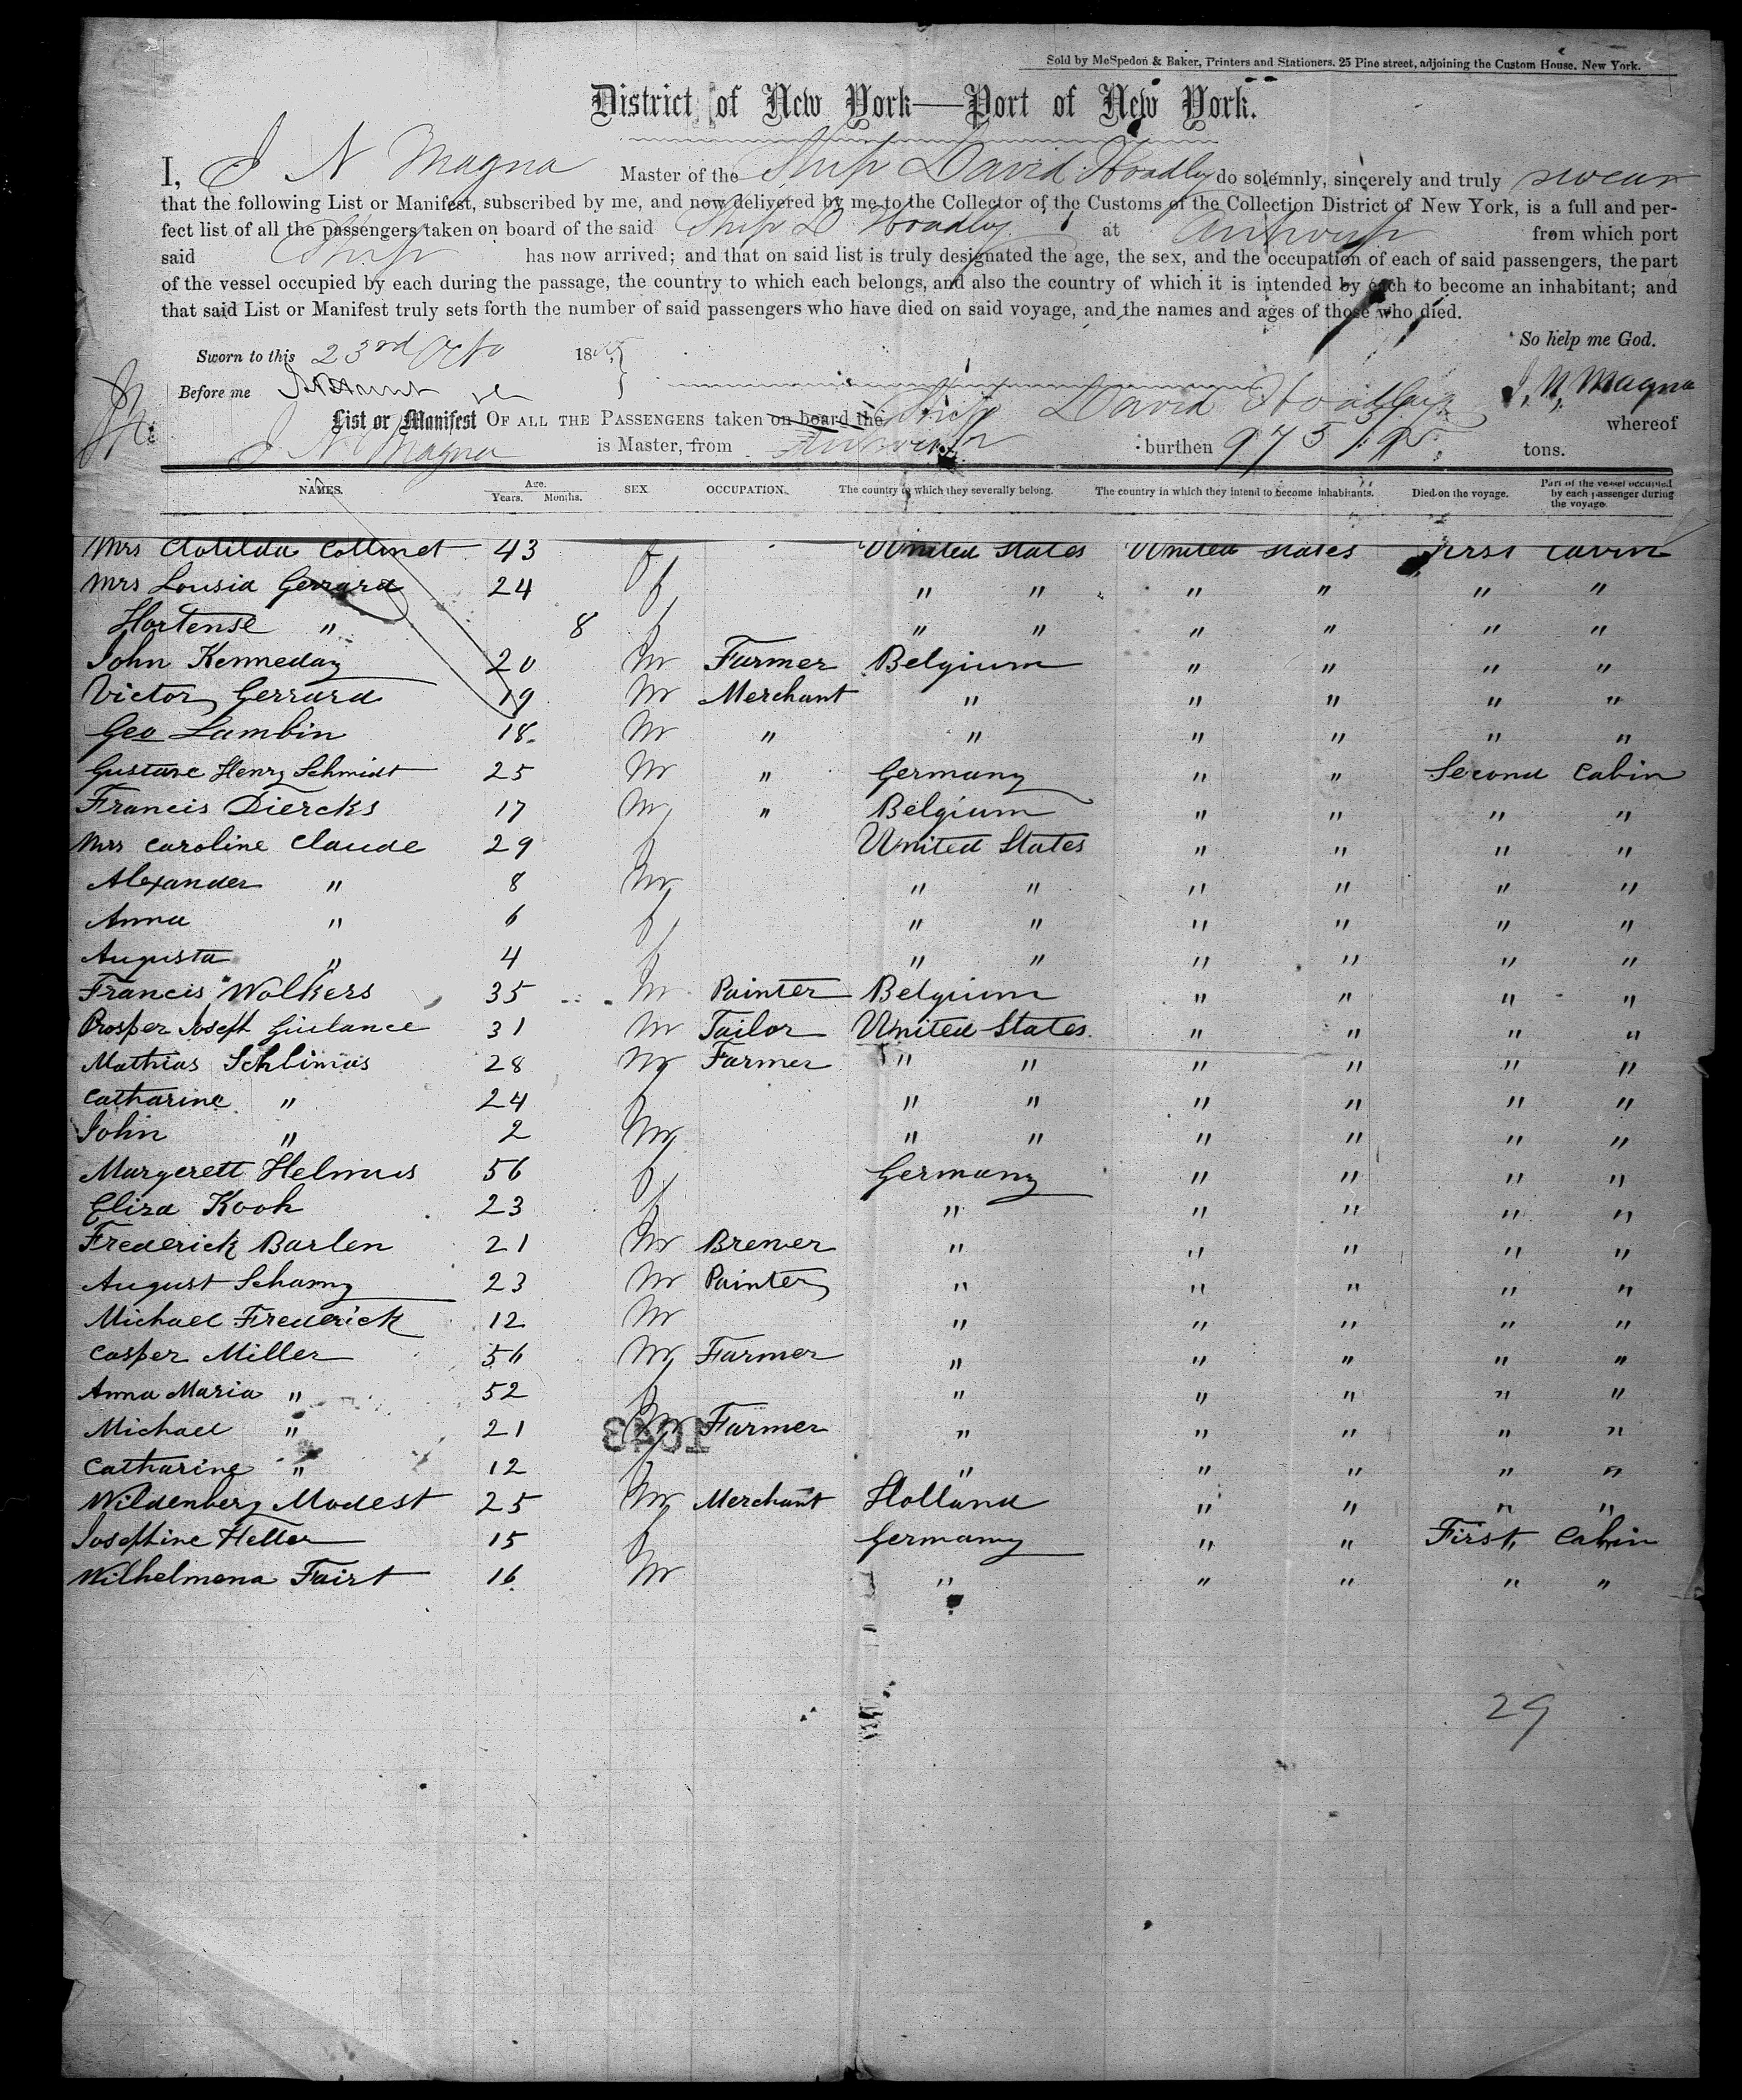 Sold by McSpedon & Baker, Printers and Stationers. 25 Pine street, adjoining the Custom House. New York.
District of New York—Port of New York.
I, J N Magna Master of the Ship David Hoadley do solemnly, sincerely and truly swear
that the following List or Manifest, subscribed by me, and now delivered by me to the Collector of the Customs of the Collection District of New York, is a full and per-
fect list of all the passengers taken on board of the said Ship D Hoadley at Antwerp from which port
said Ship has now arrived; and that on said list is truly designated the age, the sex, and the occupation of each of said passengers, the part
of the vessel occupied by each during the passage, the country to which each belongs, and also the country of which it is intended by each to become an inhabitant; and
that said List or Manifest truly sets forth the number of said passengers who have died on said voyage, and the names and ages of those who died.
So help me God.
Sworn to this 23rd Octo 18
Before me J. N. Magna
List or Manifest OF ALL THE PASSENGERS taken on board the Ship David Hoadley whereof
J N Magna is Master, from Antwerp burthen 975 tons.
NAMES. Age. Years. Months. SEX OCCUPATION. The country to which they severally belong. The country in which they intend to become inhabitants. Died on the voyage. Part of the vessel occupied by each passenger during the voyage.
Mrs Clotilda Collinet 43 f United States United States First Cabin
Mrs Lousia Gerrard 24 f " " " " " "
Hortense " 8 f " " " " " "
John Kenneday 20 M Farmer Belgium " " " "
Victor Gerrard 19 M Merchant " " " " "
Geo Lambin 18 M " " " " " "
Gustave Henry Schmidt 25 M " Germany " " Second Cabin
Francis Diercks 17 M " Belgium " " " "
Mrs Caroline Claude 29 f United States " " " "
Alexander " 8 M " " " " " "
Anna " 6 f " " " " " "
Augusta " 4 f " " " " " "
Francis Wolkers 35 M Painter Belgium " " " "
Prosper Joseph Giulance 31 M Tailor United States " " " "
Mathias Schlimas 28 M Farmer " " " " " "
Catharine " 24 f " " " " " "
John " 2 M " " " " " "
Margerett Helmus 56 f Germany " " " "
Eliza Kooh 23 f " " " " "
Frederick Barlen 21 M Brewer " " " " "
August Schamy 23 M Painter " " " " "
Michael Frederick 12 M " " " " "
Casper Miller 56 M Farmer " " " " "
Anna Maria " 52 f " " " " "
Michael " 21 M Farmer " " " " "
Catharine " 12 f " " " " "
Wildenberg Modest 25 M Merchant Holland " " " "
Josephine Heller 15 f Germany " " First Cabin
Wilhelmena Fairt 16 M " " " " "
29